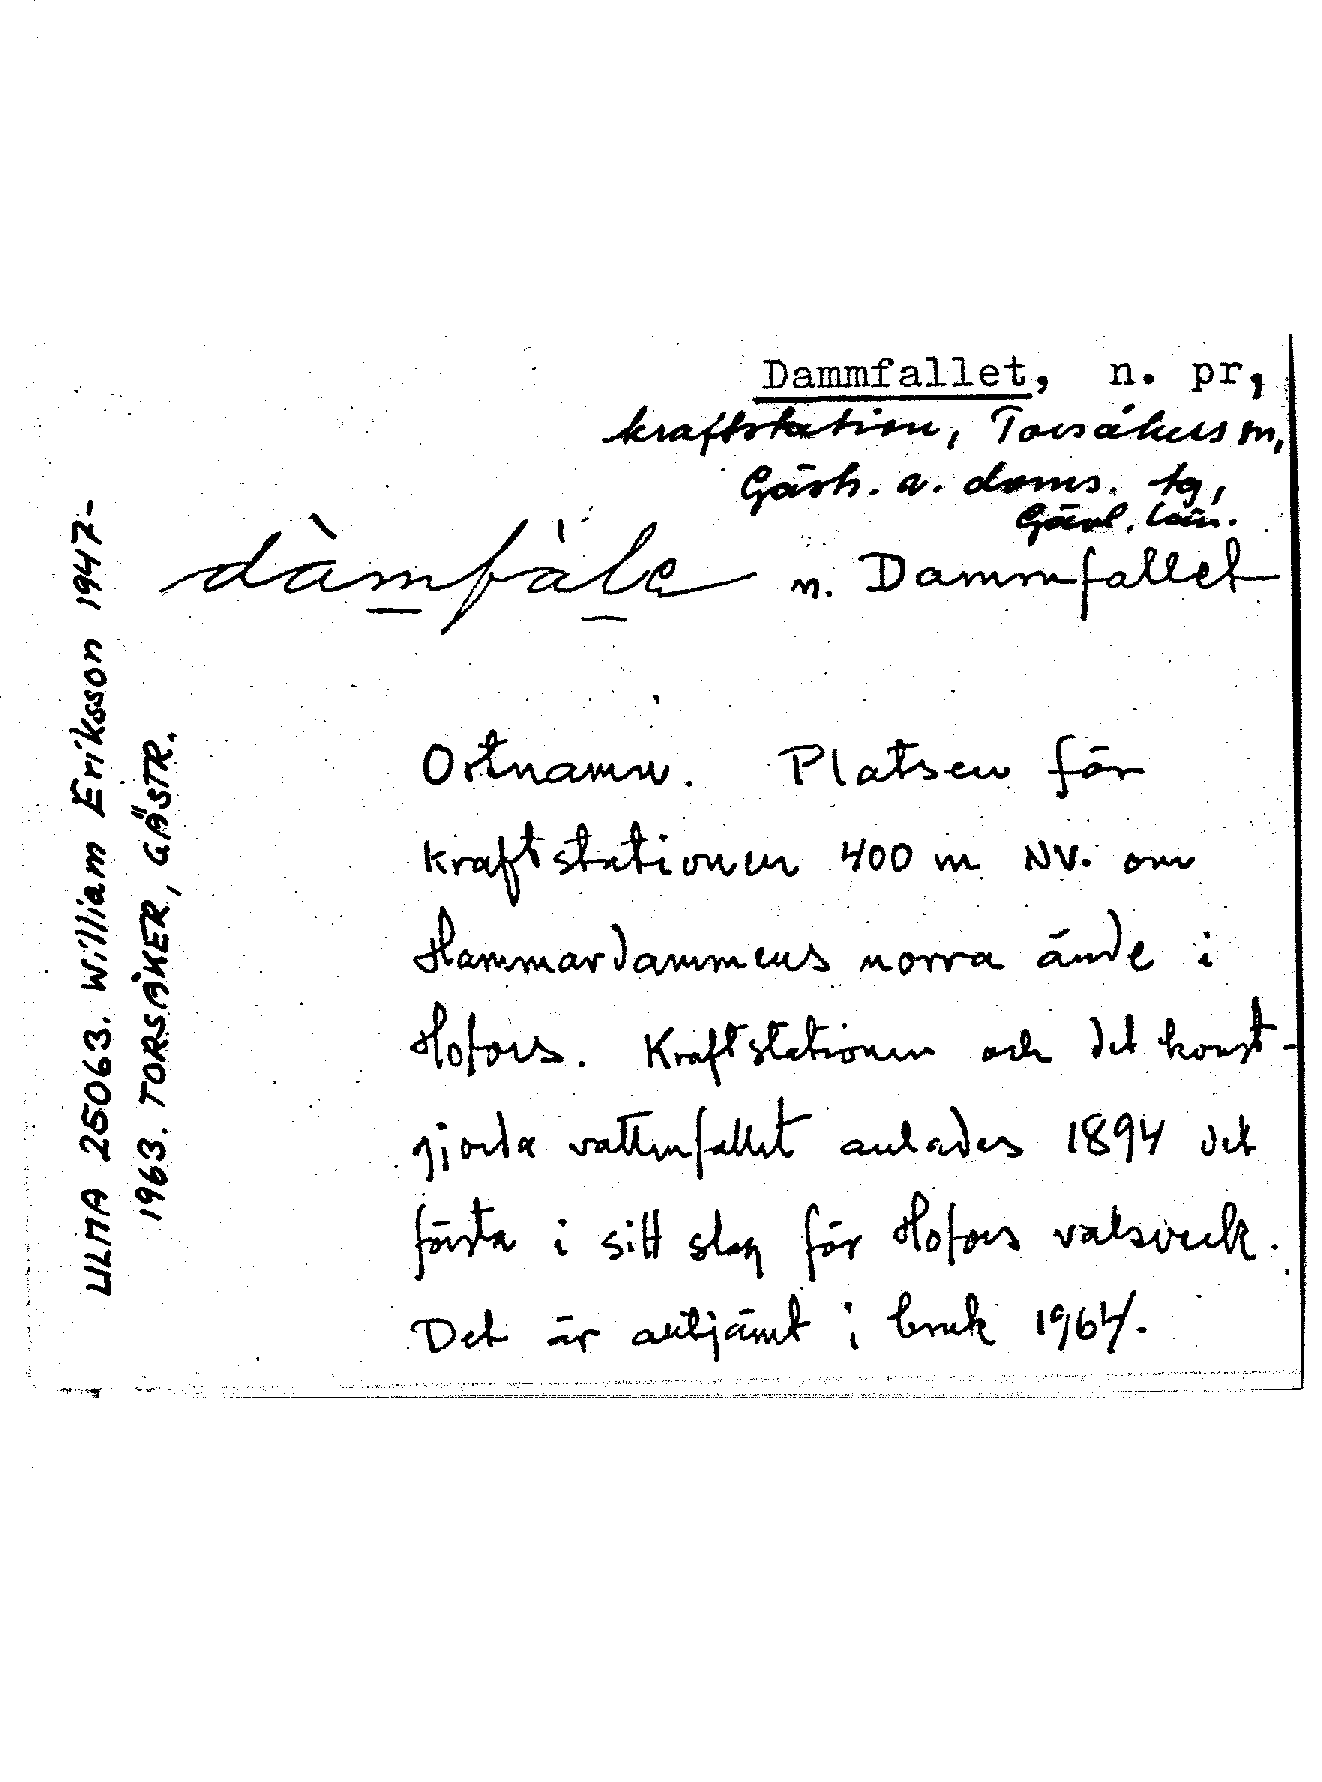 Dammfallet, n. pr,
kraftstation, Torsåkers sn,
Gästr. ö. doms. tg,
Gävl. län.
dàmfàle n. Dammfallet
Ortnamn. Platsen för
kraftstationen 400 m NV. om
Hammardammens norra ände i
Hofors. Kraftstationen och det konst-
gjorda vattenfallet anlades 1894 det
första i sitt slag för Hofors valsverk.
Det är alltjämt i bruk 1964.
ULMA 25063. William Eriksson 1947-
1963. TORSÅKER, GÄSTR.